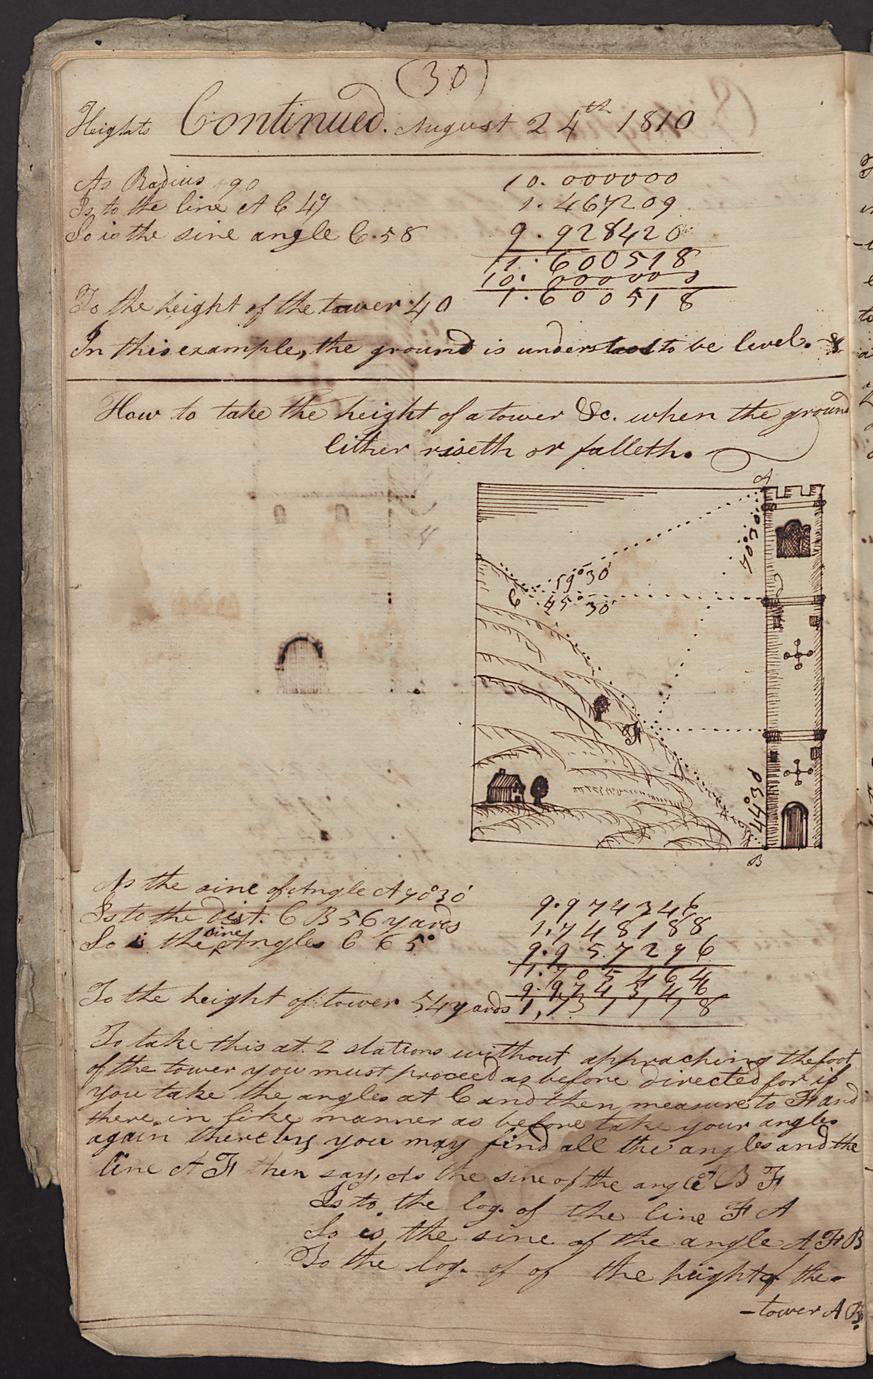 (30)
Heights Continued. August 24th 1810
As Radius 90 10.000000
Is to the line A C 47 1.467209
So is the sine angle C.58 9.928420
11.600518
10.000000
To the height of the tower 40 1.600518
In this example, the ground is understood to be level.
How to take the height of a tower &c. when the ground
Either riseth or falleth.
A
70°30'
C
19°30'
45°30'
F
44°30
B
As the sine of Angle A 70°30' 9.974346
Is to the dist. C B 56 yards 1.748188
So is the sine Angles C 65° 9.957296
11.705464
9.974346
To the height of tower 54 yards 1,731118
To take this at 2 stations without appraching the foot
of the tower you must proceed as before directed for if
you take the angles at C and then measure to F and
there in like manner as before take your angles
again thereby you may find all the angles and the
line A F then say, As the sine of the angle B F
Is to the log. of the line F A
So is the sine of the angle A F B
To the log. of of the height of the
-tower A B